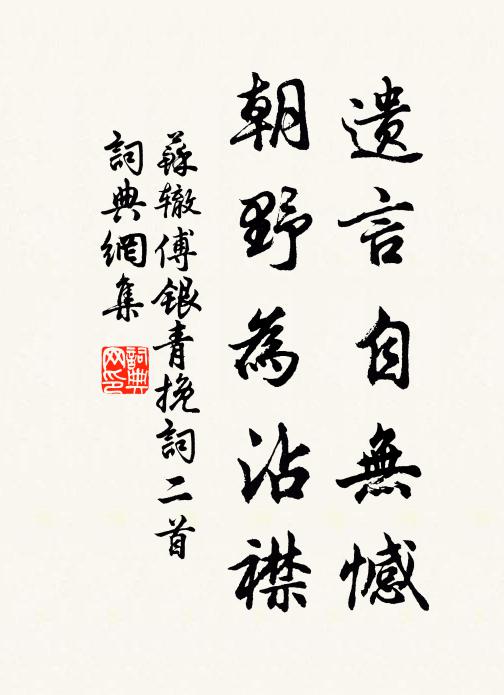 遗言自無憾
朝野為沾襟
蘇辙傅银青挽詞二首
詞典網集
詞典网印